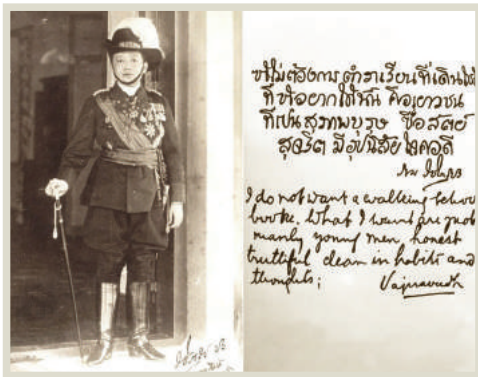 ข้าไม่ต้องการ ตำราเรียนที่เดินได้
ที่ข้าอยากได้นั้น คือเยาวชน
ที่เป็นสุภาพบุรุษ ซื่อสัตย์
สุจริต มีอุปนิสัย ใจคอดี
I do not want a walking schoo
books. What I want are just
manly young men, honest
truthful clean in habits and
thoughts; Vajiravudh